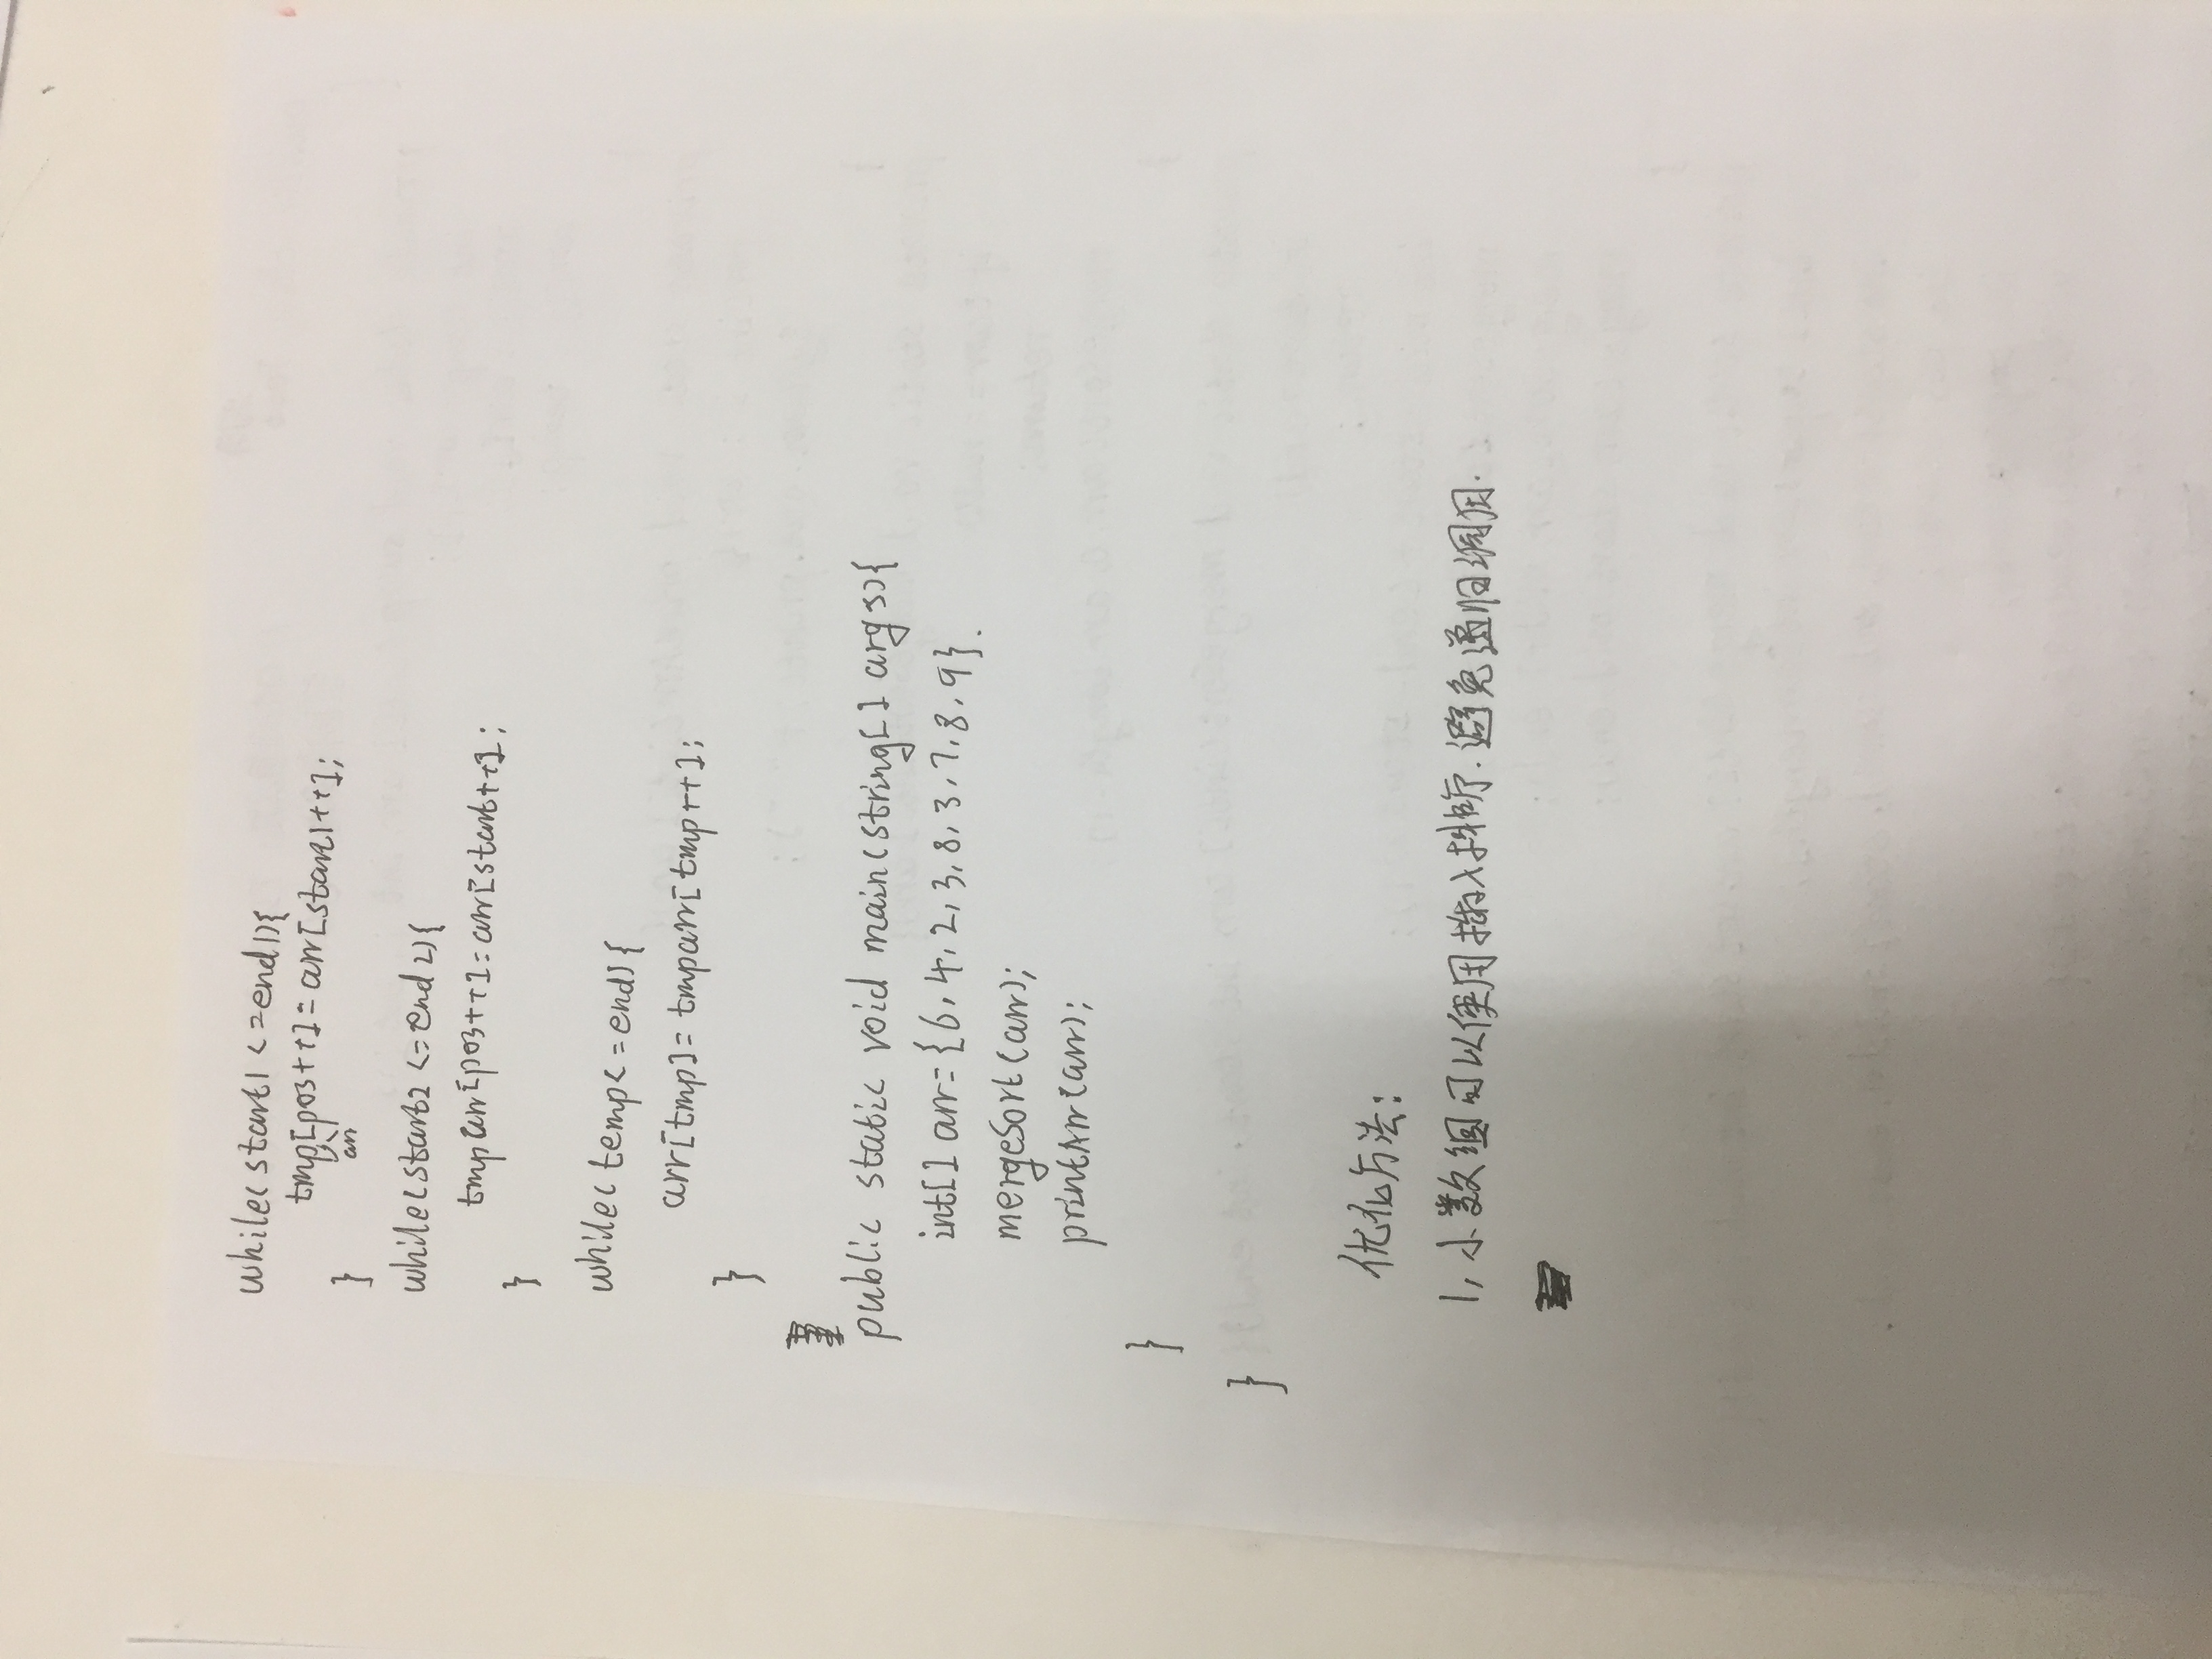 while(start1<=end1){
tmparr[pos++]=arr[start1++];
}
while(start2<=end2){
tmparr[pos++]=arr[start++];
}
while(temp<=end){
arr[tmp]=tmparr[tmp++];
}
public static void main(string[] args){
int[] arr={6,4,2,3,8,3,7,8,9}.
mergeSort(arr);
printArr(arr);
}
}
优化方法:
1,小数组可以使用插入排序.避免递归调用.